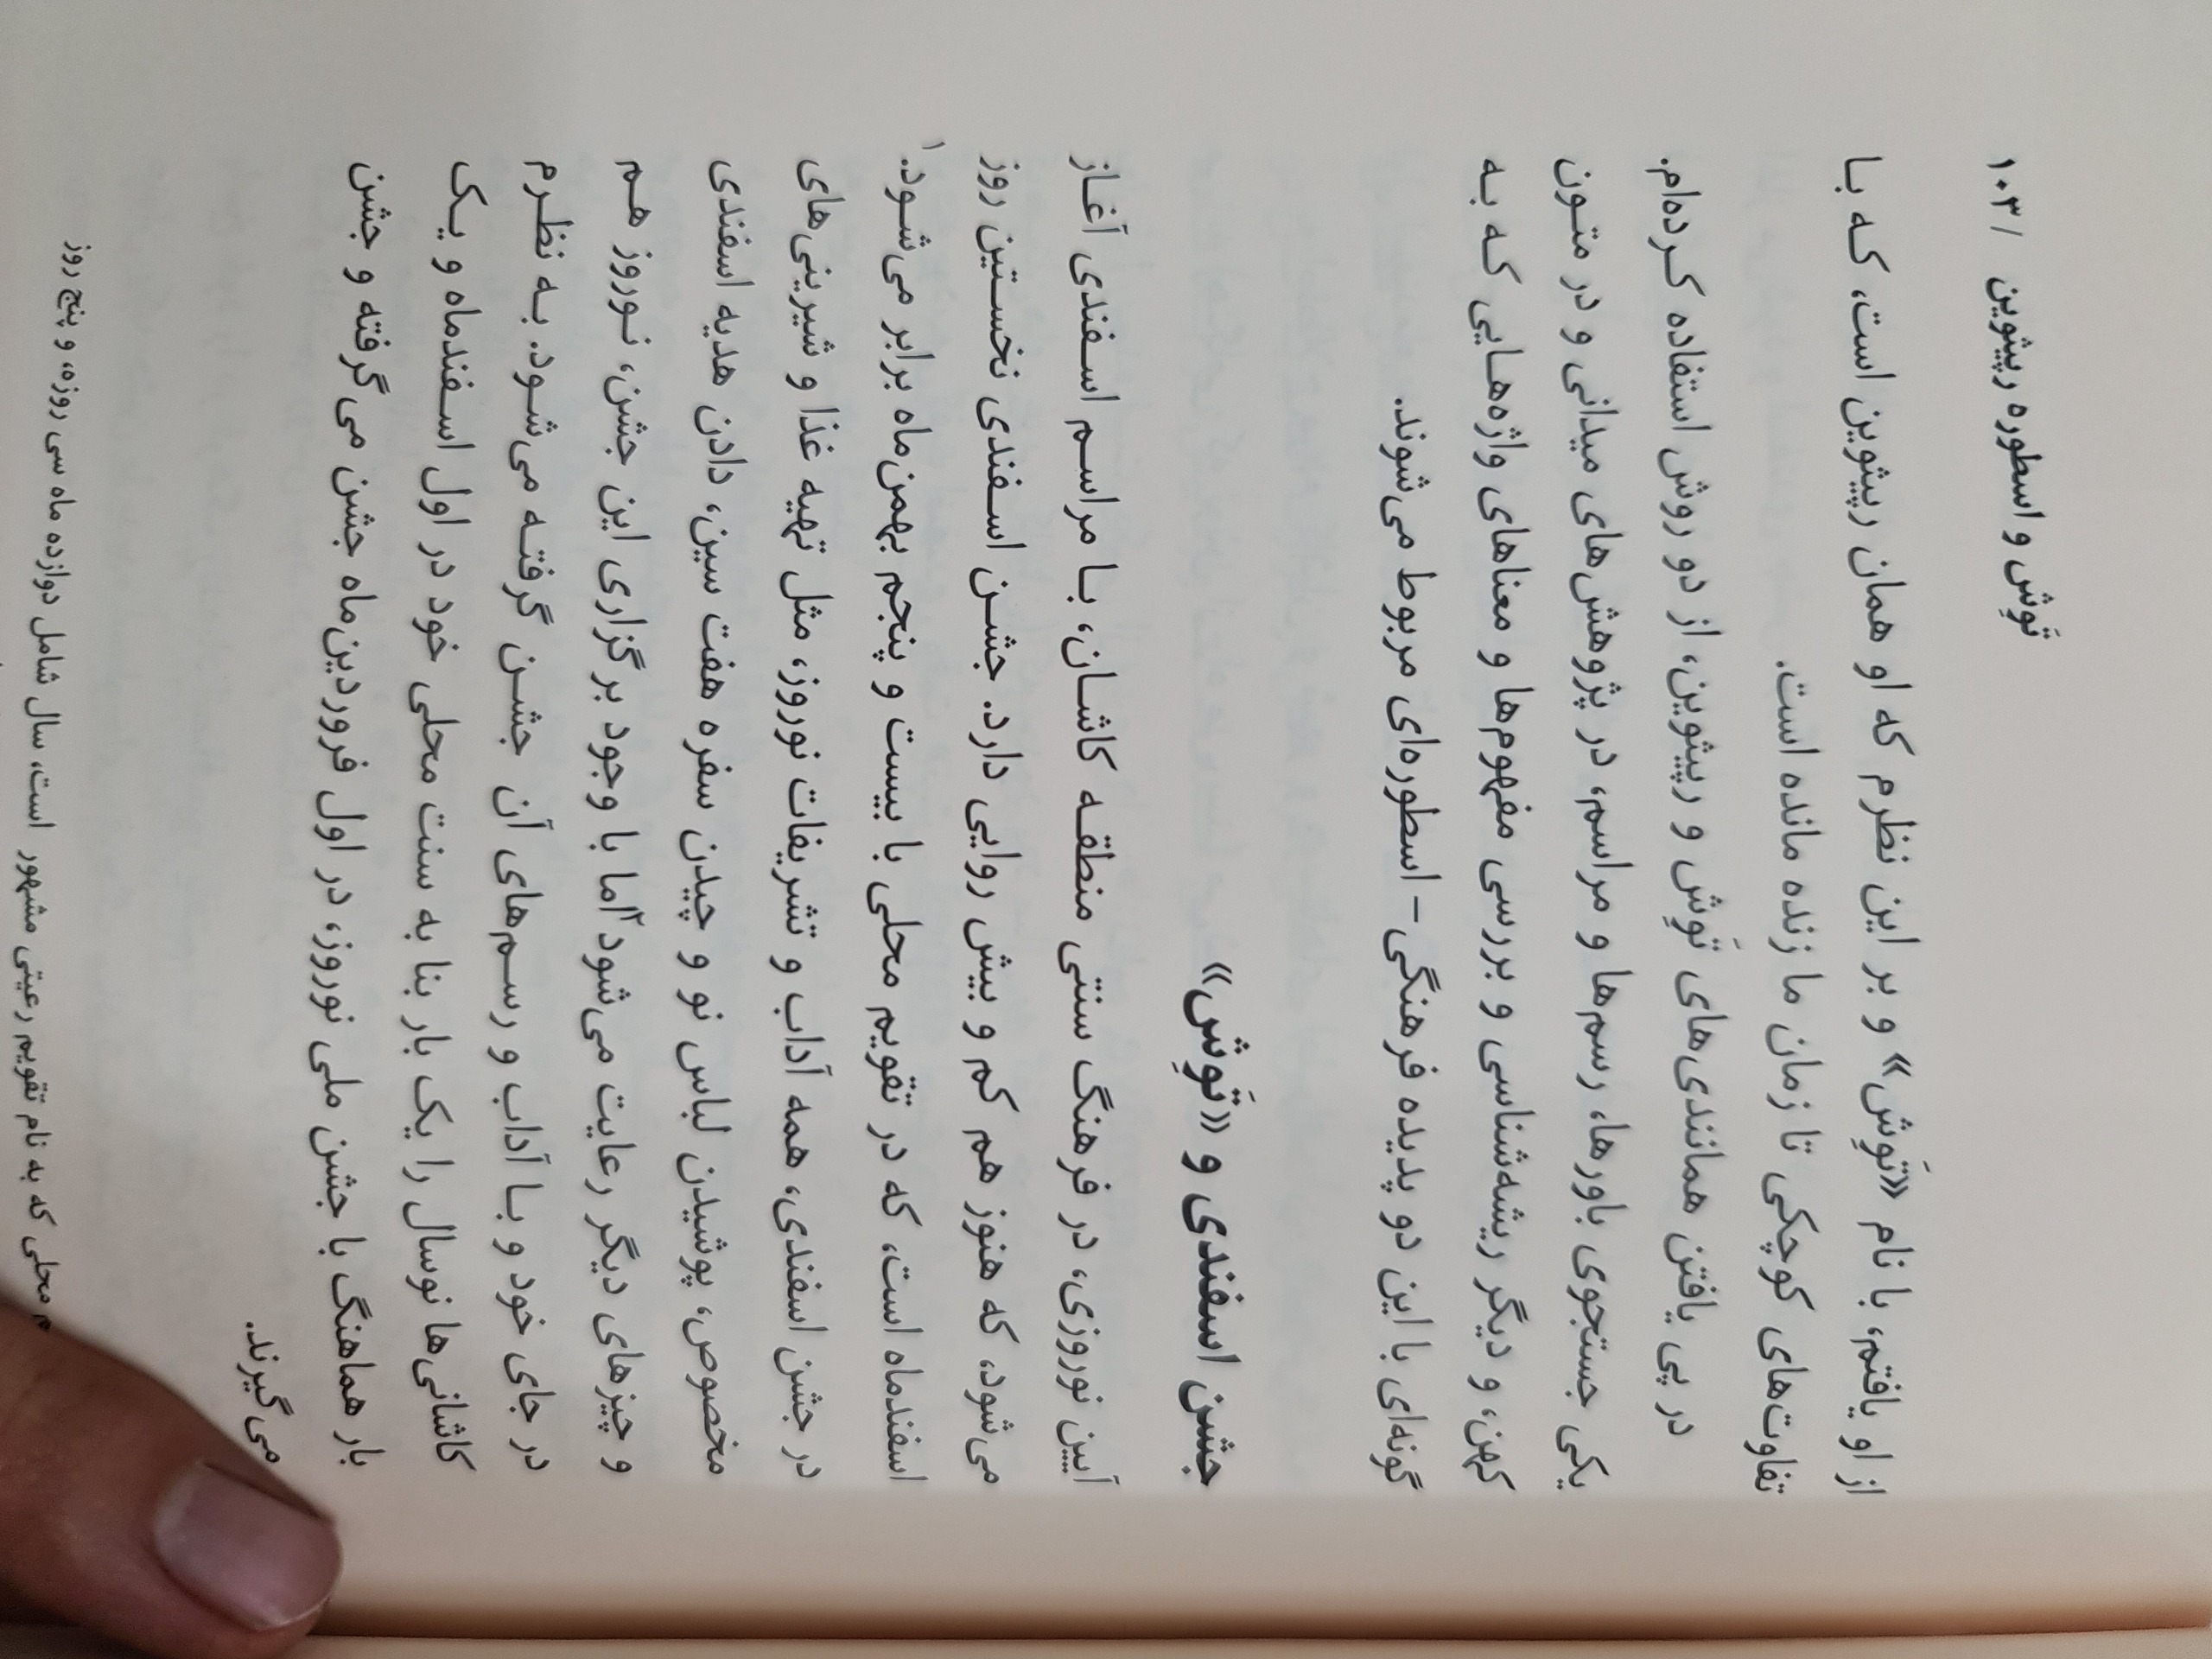 تَوِش و اسطوره رپیثوین / ۱۰۳
از او یافتم، با نام «تَوِش» و بر این نظرم که او همان رپیثوین است، که با
تفاوت‌های کوچکی تا زمان ما زنده مانده است.
در پی یافتن همانندی‌های تَوِش و رپیثوین، از دو روش استفاده کرده‌ام.
یکی جستجوی باورها، رسم‌ها و مراسم، در پژوهش‌های میدانی و در متون
کهن، و دیگر ریشه‌شناسی و بررسی مفهوم‌ها و معناهای واژه‌هایی که به
گونه‌ای با این دو پدیده فرهنگی - اسطوره‌ای مربوط می‌شوند.
جشن اسفندی و «تَوِش»
آیین نوروزی، در فرهنگ سنتی منطقه کاشان، با مراسم اسفندی آغاز
می‌شود، که هنوز هم کم و بیش روایی دارد. جشن اسفندی نخستین روز
اسفندماه است، که در تقویم محلی با بیست و پنجم بهمن‌ماه برابر می‌شود.۱
در جشن اسفندی، همه آداب و تشریفات نوروز، مثل تهیه غذا و شیرینی‌های
مخصوص، پوشیدن لباس نو و چیدن سفره هفت سین، دادن هدیه اسفندی
و چیزهای دیگر رعایت می‌شود۲ اما با وجود برگزاری این جشن، نوروز هم
در جای خود و با آداب و رسم‌های آن جشن گرفته می‌شود. به نظرم
کاشانی‌ها نوسال را یک بار بنا به سنت محلی خود در اول اسفندماه و یک
بار هماهنگ با جشن ملی نوروز، در اول فروردین‌ماه جشن می‌گرفته و جشن
می‌گیرند.
محلی که به نام تقویم رعیتی مشهور است، سال شامل دوازده ماه سی روزه، و پنج روز